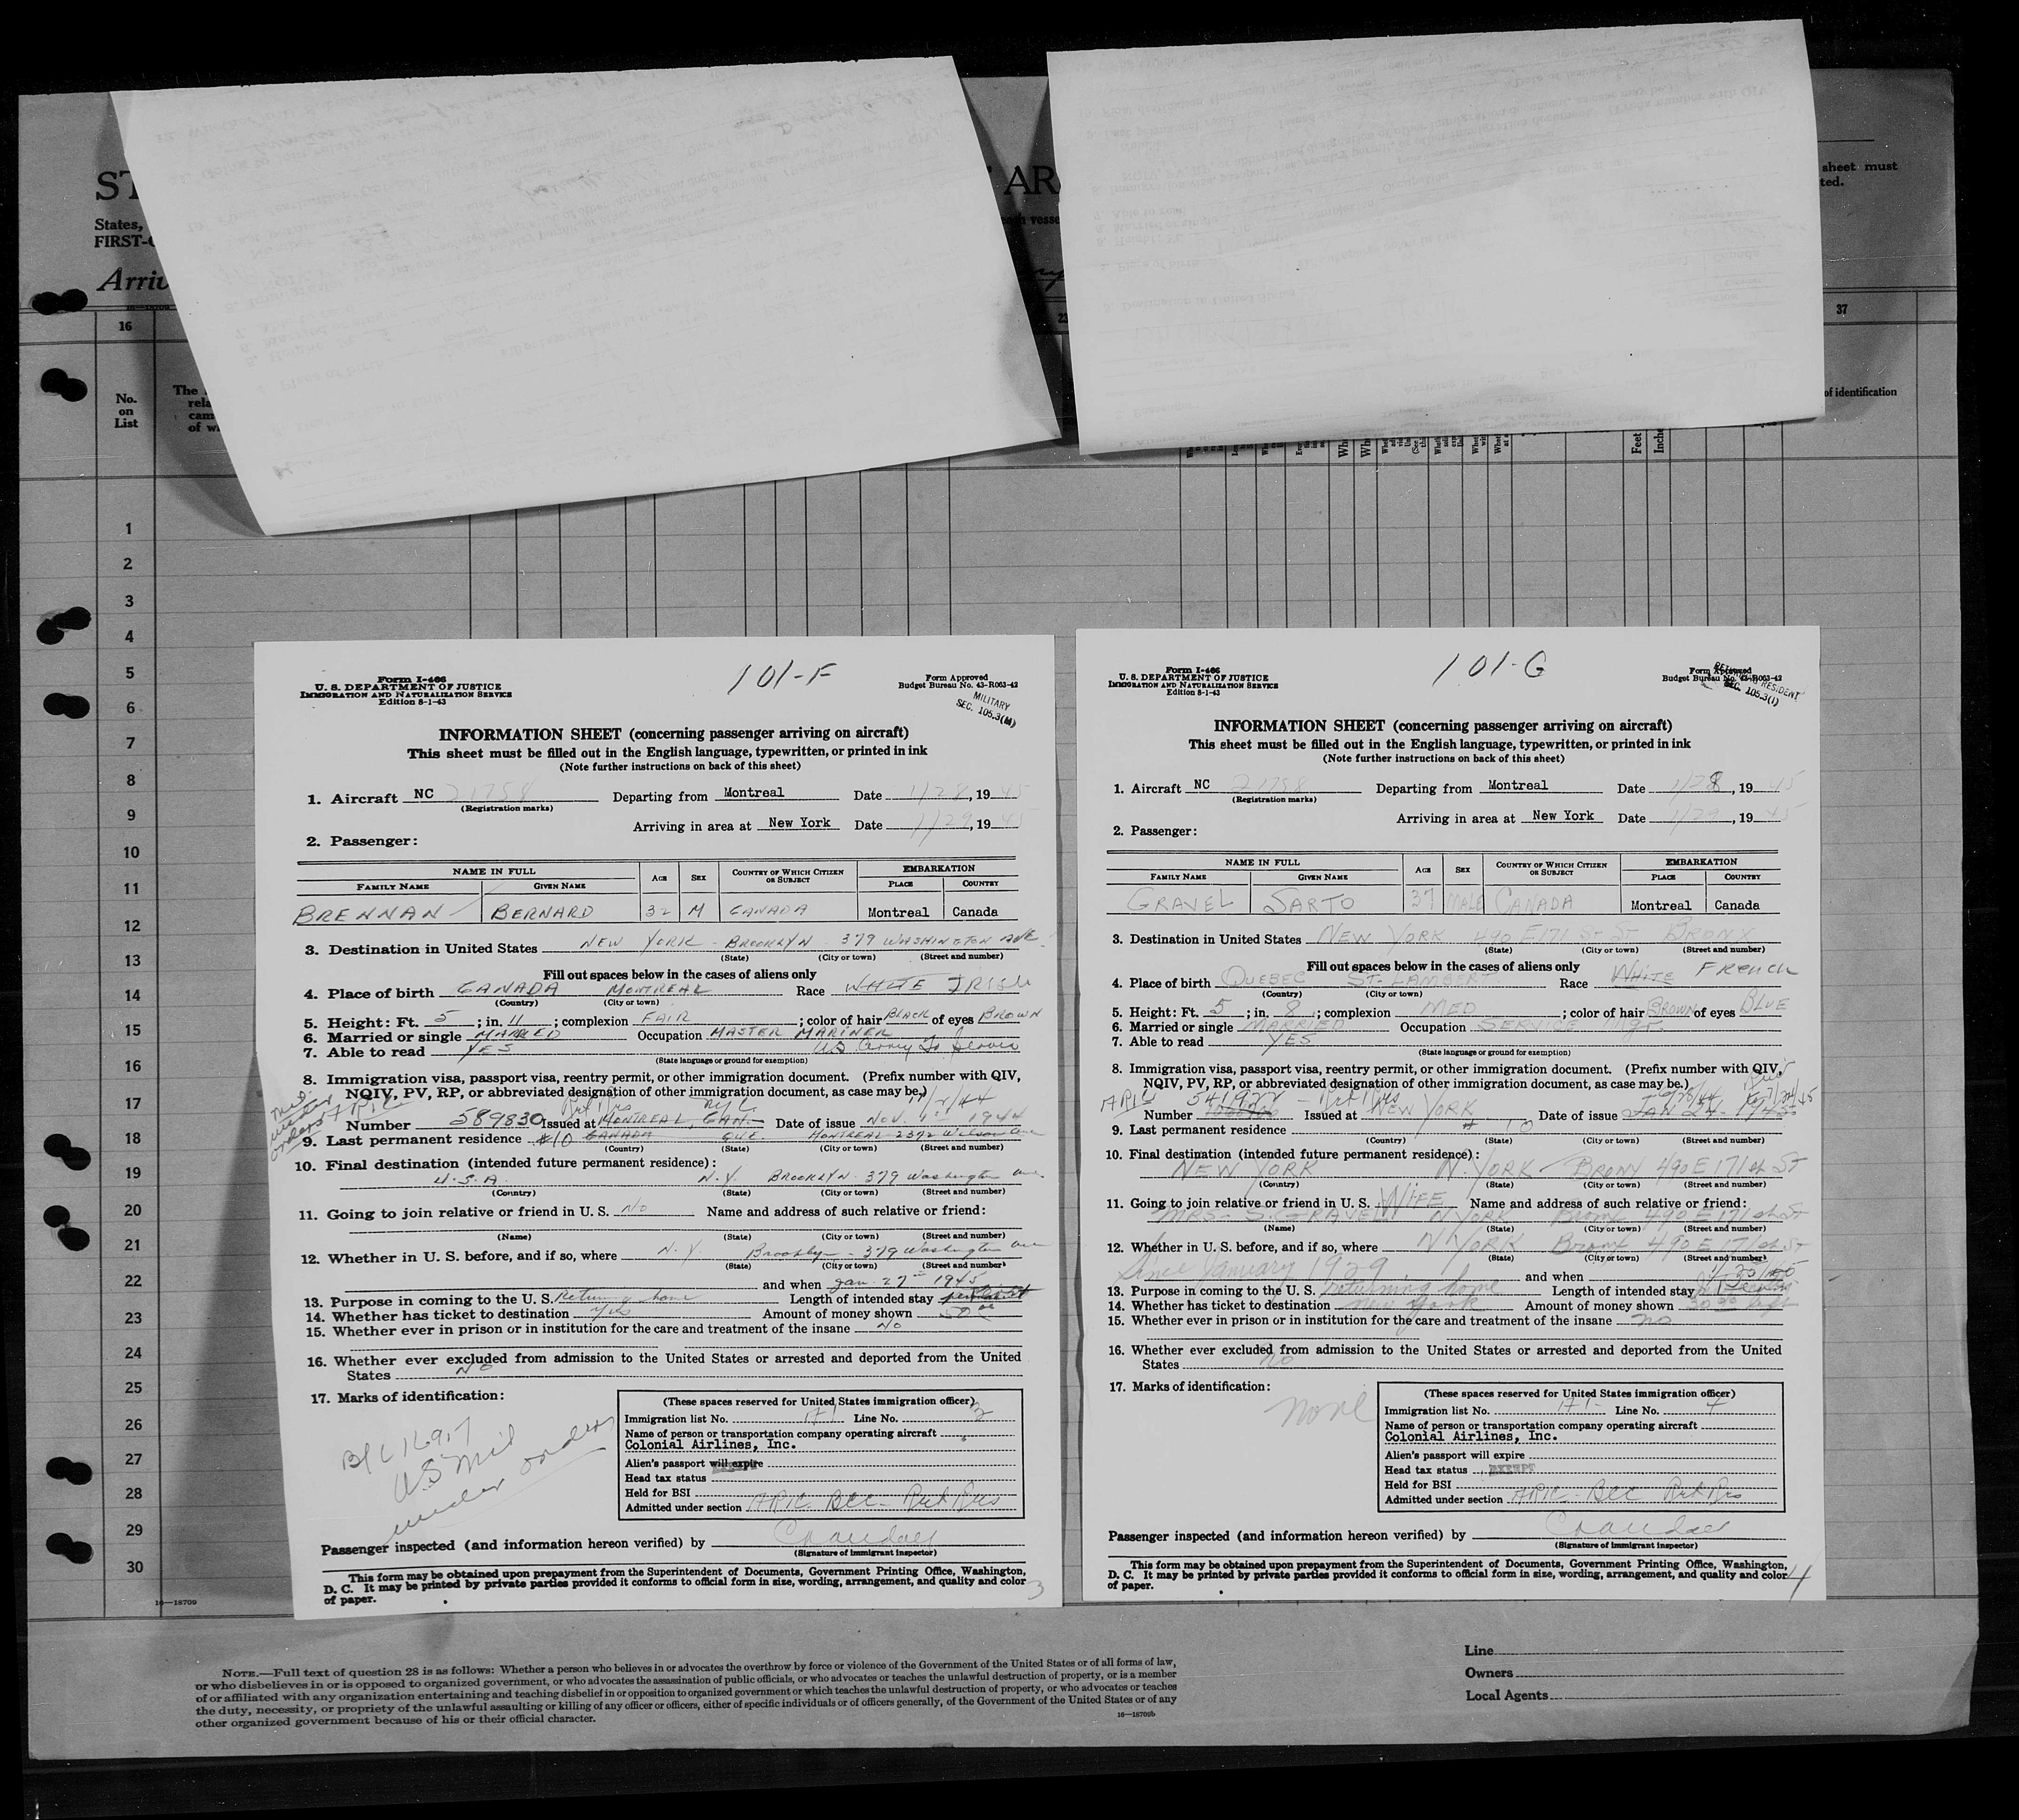 ST
AR
sheet must
ted.
States,
FIRST-C
Arriv
16
37
No.
on
List
The
rela
cam
of w
of identification
Feet
Inche
1
2
3
4
5
6
7
8
9
10
11
12
13
14
15
16
17
18
19
20
21
22
23
24
25
26
27
28
29
30
16—18709
Form I-466
U. S. DEPARTMENT OF JUSTICE
IMMIGRATION AND NATURALIZATION SERVICE
Edition 8-1-43
101-F
Form Approved
Budget Bureau No. 43-R063-42
MILITARY
SEC. 105.3(M)
INFORMATION SHEET (concerning passenger arriving on aircraft)
This sheet must be filled out in the English language, typewritten, or printed in ink
(Note further instructions on back of this sheet)
1. Aircraft NC 21758 Departing from Montreal Date 1/28, 1945
(Registration marks)
Arriving in area at New York Date 1/29, 1945
2. Passenger:
NAME IN FULL AGE SEX COUNTRY OF WHICH CITIZEN OR SUBJECT EMBARKATION
FAMILY NAME GIVEN NAME PLACE COUNTRY
BRENNAN BERNARD 32 M CANADA Montreal Canada
3. Destination in United States NEW YORK - BROOKLYN 379 WASHINGTON AVE.
(State) (City or town) (Street and number)
Fill out spaces below in the cases of aliens only
4. Place of birth CANADA MONTREAL Race WHITE IRISH
(Country) (City or town)
5. Height: Ft. 5; in. 11; complexion FAIR; color of hair BLACK of eyes BROWN
6. Married or single MARRIED Occupation MASTER MARINER
7. Able to read YES U.S. Army
(State language or ground for exemption)
8. Immigration visa, passport visa, reentry permit, or other immigration document. (Prefix number with QIV,
NQIV, PV, RP, or abbreviated designation of other immigration document, as case may be.)
11/2/44
Number 589830 Issued at MONTREAL, CAN. Date of issue NOV. 1st 1944
9. Last permanent residence #10 CANADA QUE. MONTREAL 2372 Wilson Ave
(Country) (State) (City or town) (Street and number)
10. Final destination (intended future permanent residence):
U.S.A. N.Y. BROOKLYN 379 Washington ave
(Country) (State) (City or town) (Street and number)
11. Going to join relative or friend in U. S. NO Name and address of such relative or friend:
(Name) (State) (City or town) (Street and number)
12. Whether in U. S. before, and if so, where N.Y. Brooklyn - 379 Washington ave
(State) (City or town) (Street and number)
and when Jan. 27th 1945
13. Purpose in coming to the U. S. Return home Length of intended stay
14. Whether has ticket to destination yes Amount of money shown 50.00
15. Whether ever in prison or in institution for the care and treatment of the insane NO
16. Whether ever excluded from admission to the United States or arrested and deported from the United
States NO
17. Marks of identification:
B/C 16917
US Mil
under orders
(These spaces reserved for United States immigration officer)
Immigration list No. 171 Line No. 3
Name of person or transportation company operating aircraft
Colonial Airlines, Inc.
Alien's passport will expire
Head tax status
Held for BSI
Admitted under section ARIC Bcc - Ret Res
Passenger inspected (and information hereon verified) by
(Signature of immigrant inspector)
This form may be obtained upon prepayment from the Superintendent of Documents, Government Printing Office, Washington,
D. C. It may be printed by private parties provided it conforms to official form in size, wording, arrangement, and quality and color
of paper.
3
Form I-466
U. S. DEPARTMENT OF JUSTICE
IMMIGRATION AND NATURALIZATION SERVICE
Edition 8-1-43
101-G
Form Approved
Budget Bureau No. 43-R063-42
RESIDENT
SEC. 105.3(I)
INFORMATION SHEET (concerning passenger arriving on aircraft)
This sheet must be filled out in the English language, typewritten, or printed in ink
(Note further instructions on back of this sheet)
1. Aircraft NC 21758 Departing from Montreal Date 1/28, 1945
(Registration marks)
Arriving in area at New York Date 1/29, 1945
2. Passenger:
NAME IN FULL AGE SEX COUNTRY OF WHICH CITIZEN OR SUBJECT EMBARKATION
FAMILY NAME GIVEN NAME PLACE COUNTRY
GRAVEL SARTO 37 MALE CANADA Montreal Canada
3. Destination in United States NEW YORK 490 E 171 ST ST BRONX
(State) (City or town) (Street and number)
Fill out spaces below in the cases of aliens only
4. Place of birth QUEBEC ST. LAMBERT Race WHITE FRENCH
(Country) (City or town)
5. Height: Ft. 5; in. 8; complexion MED; color of hair BROWN of eyes BLUE
6. Married or single MARRIED Occupation SERVICE Mgr
7. Able to read YES
(State language or ground for exemption)
8. Immigration visa, passport visa, reentry permit, or other immigration document. (Prefix number with QIV,
NQIV, PV, RP, or abbreviated designation of other immigration document, as case may be.)
ARIC 541922 - Ret Res
Number Issued at NEW YORK Date of issue JAN 24 - 1945
9. Last permanent residence # 10
(Country) (State) (City or town) (Street and number)
10. Final destination (intended future permanent residence):
NEW YORK N. YORK BRONX 490 E 171 st St
(Country) (State) (City or town) (Street and number)
11. Going to join relative or friend in U. S. WIFE Name and address of such relative or friend:
MRS- S. GRAVEL N YORK Bronx 490 E 171 st St
(Name) (State) (City or town) (Street and number)
12. Whether in U. S. before, and if so, where N YORK Bronx 490 E 171 st St
(State) (City or town) (Street and number)
Since January 1929 and when 1/25/45
13. Purpose in coming to the U. S. returning home Length of intended stay
14. Whether has ticket to destination new york Amount of money shown
15. Whether ever in prison or in institution for the care and treatment of the insane no
16. Whether ever excluded from admission to the United States or arrested and deported from the United
States no
17. Marks of identification:
none
(These spaces reserved for United States immigration officer)
Immigration list No. 171 Line No. 4
Name of person or transportation company operating aircraft
Colonial Airlines, Inc.
Alien's passport will expire
Head tax status EXEMPT
Held for BSI
Admitted under section ARIC - Bcc Ret Res
Passenger inspected (and information hereon verified) by
(Signature of immigrant inspector)
This form may be obtained upon prepayment from the Superintendent of Documents, Government Printing Office, Washington,
D. C. It may be printed by private parties provided it conforms to official form in size, wording, arrangement, and quality and color
of paper.
4
NOTE.—Full text of question 28 is as follows: Whether a person who believes in or advocates the overthrow by force or violence of the Government of the United States or of all forms of law,
or who disbelieves in or is opposed to organized government, or who advocates the assassination of public officials, or who advocates or teaches the unlawful destruction of property, or is a member
of or affiliated with any organization entertaining and teaching disbelief in or opposition to organized government or which teaches the unlawful destruction of property, or who advocates or teaches
the duty, necessity, or propriety of the unlawful assaulting or killing of any officer or officers, either of specific individuals or of officers generally, of the Government of the United States or of any
other organized government because of his or their official character.
16—18709b
Line
Owners
Local Agents